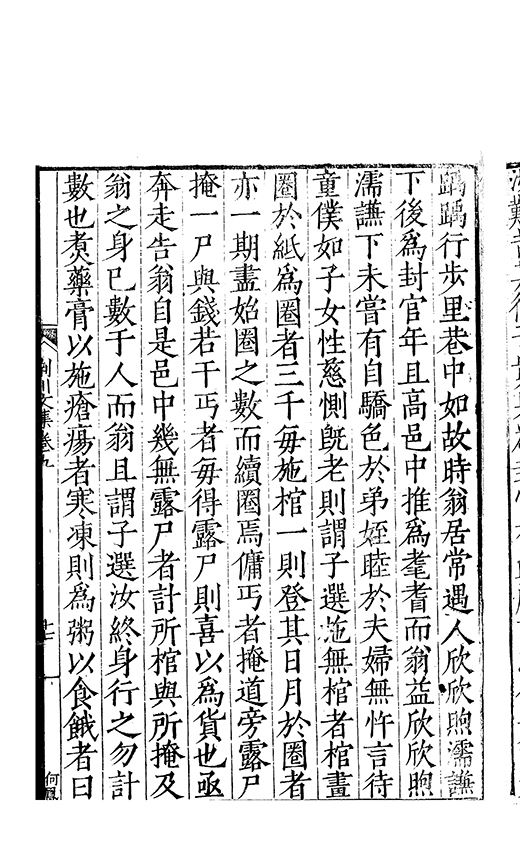 踽踽行步里巷中如故時翁居常遇人欣欣煦濡謙
下後爲封官年且高邑中推爲耄耆而翁益欣欣煦
濡謙下未嘗有自驕色於弟姪睦於夫婦無忤言待
童僕如子女性慈惻旣老則謂子選施無棺者棺畫
圈於紙爲圈者三千每施棺一則登其日月於圈者
亦一期盡始圈之數而續圈焉傭丐者掩道旁露尸
掩一尸與錢若干丐者每得露尸則喜以爲貨也亟
奔走告翁自是邑中幾無露尸者計所棺與所掩及
翁之身已數千人而翁且謂子選汝終身行之勿計
數也煑藥膏以施瘡瘍者寒凍則爲粥以食餓者曰
荆川文集卷九
十七